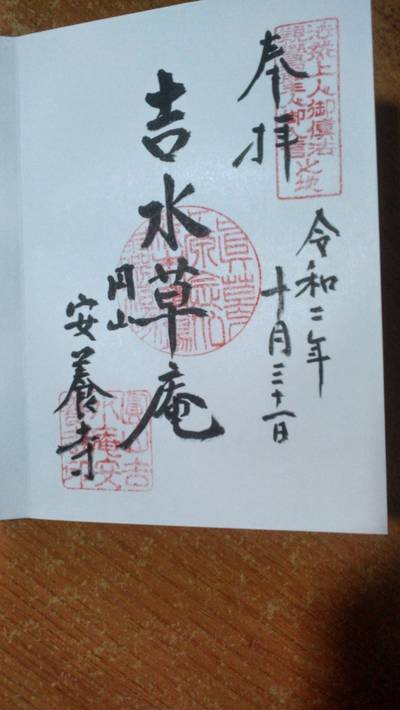 奉拝
法然上人御弘法之地
親鸞聖人御聞信之地
令和二年
十月三十一日
吉水草庵
円山
安養寺